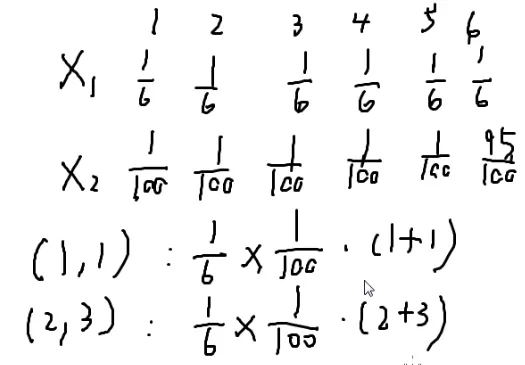 1 2 3 4 5 6
X₁ 1/6 1/6 1/6 1/6 1/6 1/6
X₂ 1/100 1/100 1/100 1/100 1/100 95/100
(1,1) : 1/6 × 1/100 · (1+1)
(2,3) : 1/6 × 1/100 · (2+3)